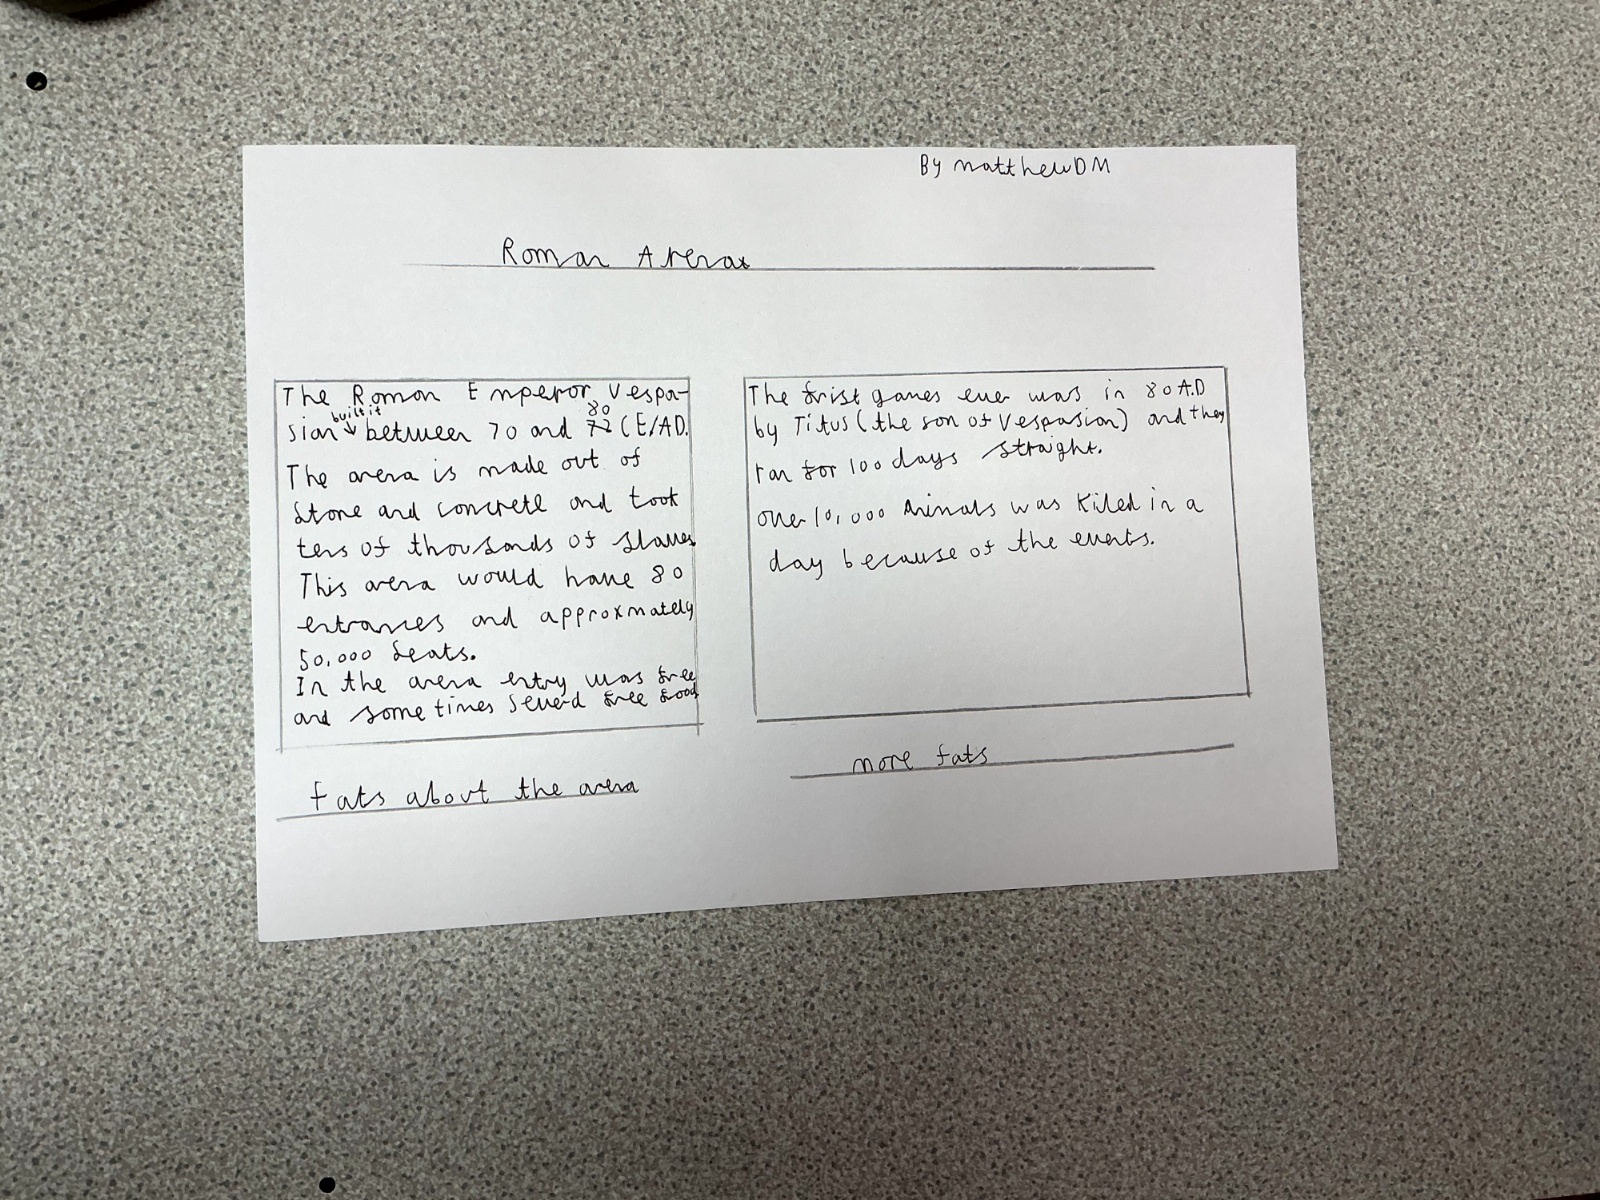 By matthewDM
Roman Arenas
The Roman Emperor Vespa-
sion built it between 70 and 72 80 CE/AD.
The arena is made out of
Stone and concrete and took
tens of thousands of slaves
This arena would have 80
entrances and approxmately
50,000 seats.
In the arena entry was free
and some times severd free food
fats about the arena
The frist games ever was in 80 A.D
by Titus (the son of Vespasion) and they
ran for 100 days straight.
over 10,000 Animals was Killed in a
day because of the events.
more fats